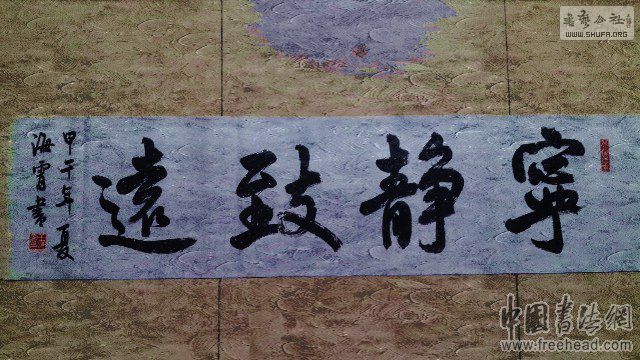 寧靜致遠
甲午年夏
海霄書
WWW.SHUFA.ORG
中國書法網
www.freehead.com